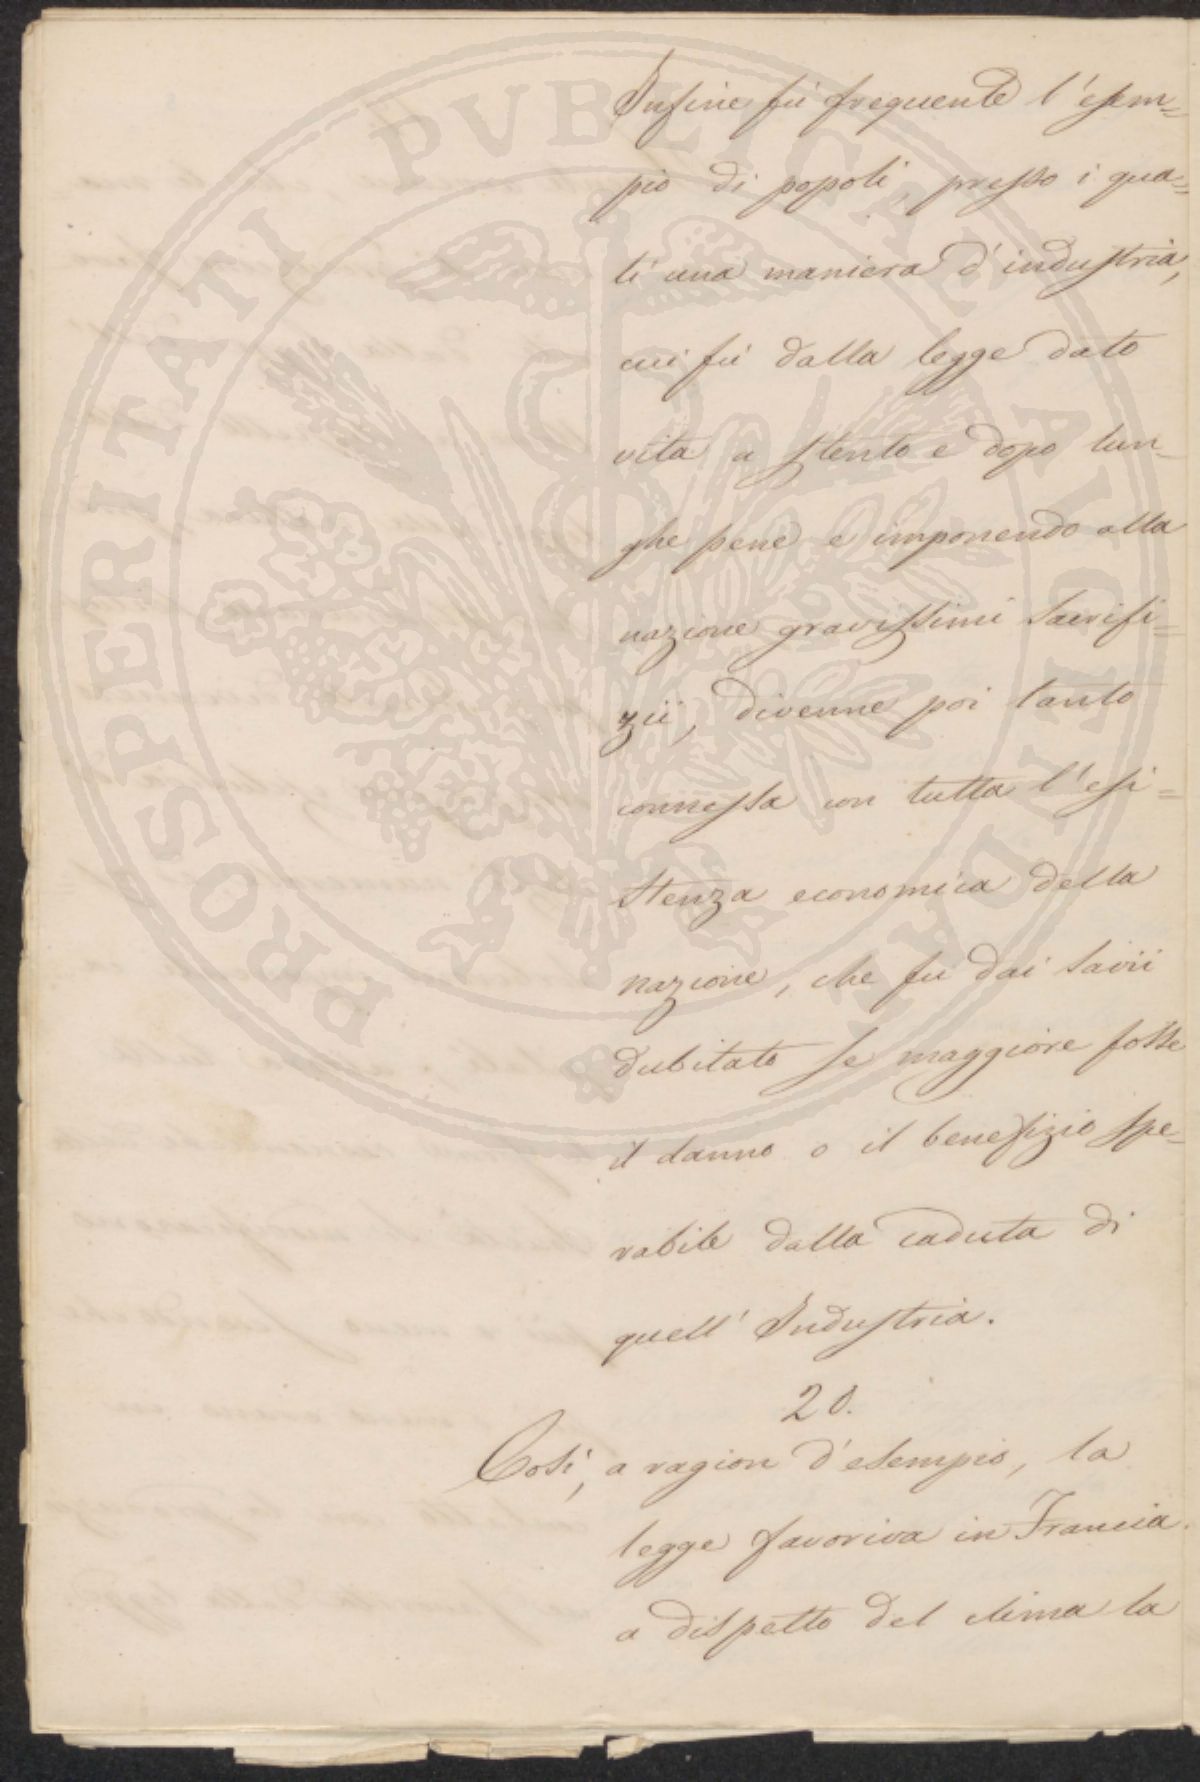 Infine fù frequente l'esem=
pio di popoli, presso i qua=
li una maniera d'industria,
cui fù dalla legge dato
vita a stento e dopo lun-
ghe pene e imponendo alla
nazione gravissimi sacrifi=
zii, divenne poi tanto
connessa con tutta l'esi=
stenza economica della
nazione, che fu dai savii
dubitato se maggiore fosse
il danno o il benefizio spe-
rabile dalla caduta di
quell' Industria.
20.
Così, a ragion d'esempio, la
legge favoriva in Francia
a dispetto del clima la
PROSPERITATI PVBLICAE AVGENDAE